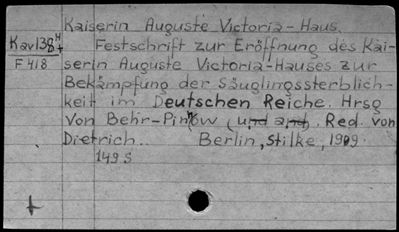 Kaiserin Auguste Victoria-Haus.
Kav138 H Festschrift zur Eröffnung des Kai-
F418 serin Auguste Victoria-Hauses zur
Bekämpfung der Säuglingssterblich-
keit im Deutschen Reiche. Hrsg
von Behr-Pinnow (und a. Red. von
Dietrich.. Berlin, Stilke, 1909.
149 S